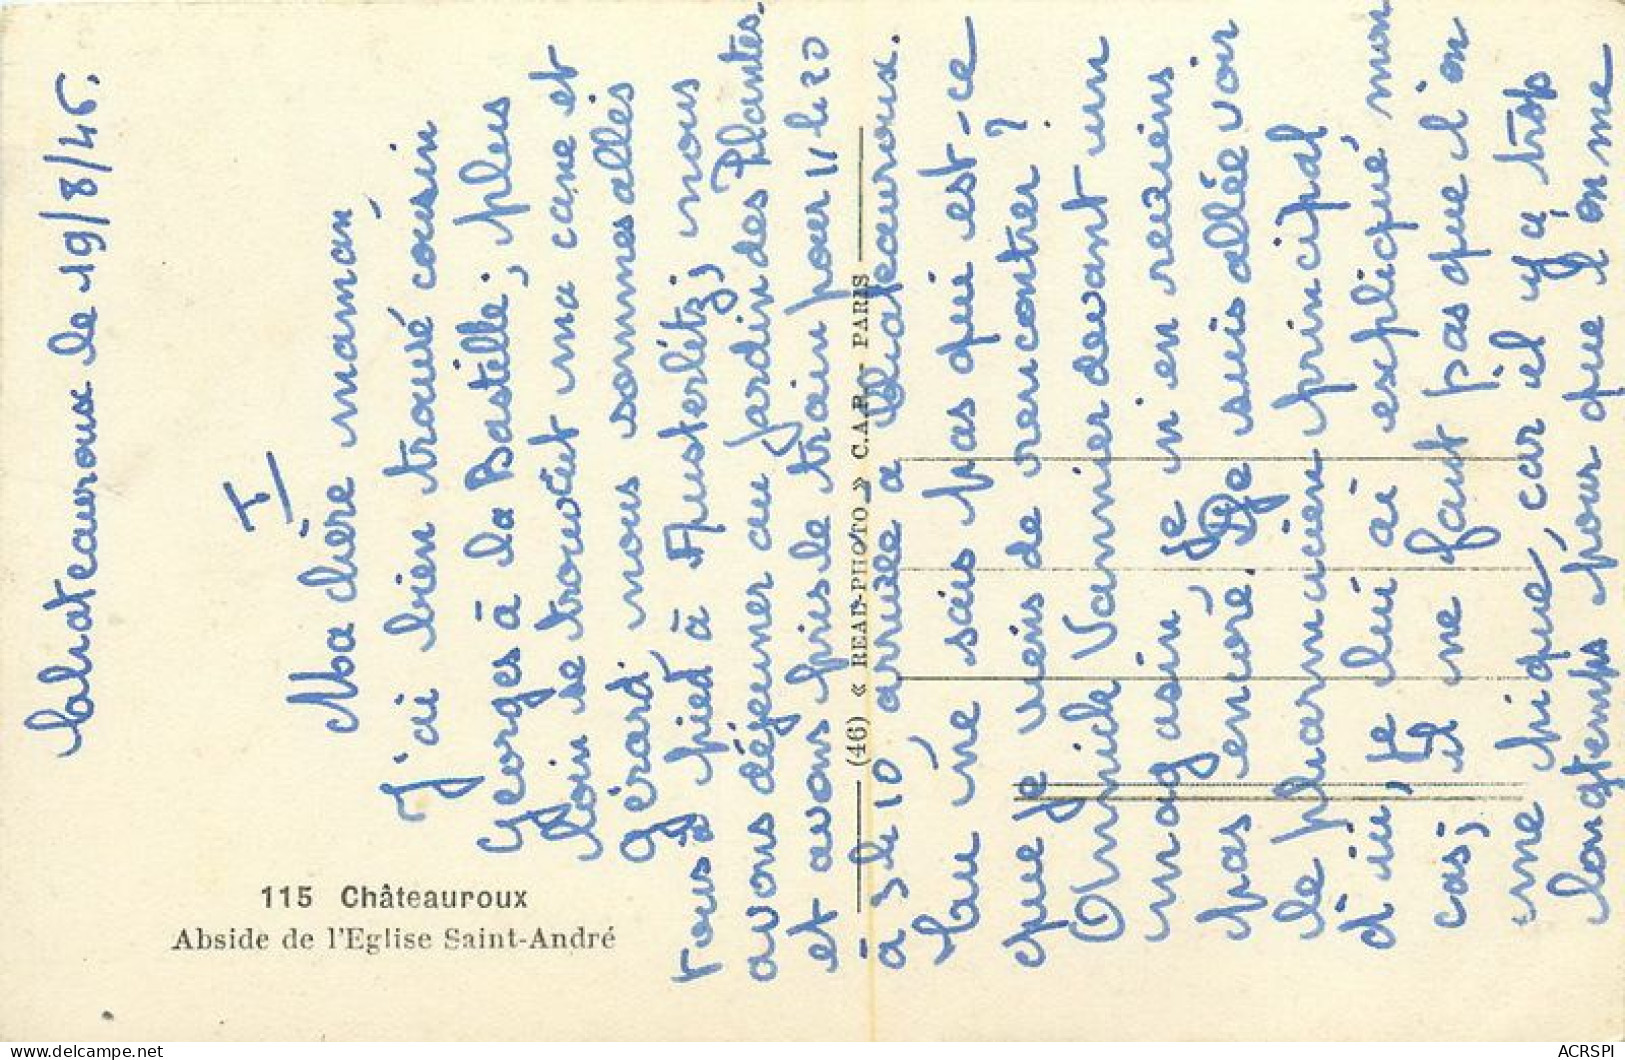 Chateauroux le 19/8/46.
I
Ma chère maman,
J'ai bien trouvé cousin
Georges à la Bastille; plus
loin se trouvait ma cane et
Gérard, nous sommes allés
tous à pied à Austerlitz; nous
avons déjeuner au jardin des Plantes.
et avons pris le train pour 11 h 20
à 3 h 10 arrivée a Chateauroux.
Tu ne sais pas qui est-ce
que je viens de rencontrer?
Annick Vannier devant un
magasin, je n'en reviens
pas encore. Je suis allée voir
le pharmacien principal
d'ici, je lui ai expliqué mon
cas; il ne faut pas que l'on
me pique, car il y a trop
longtemps pour que l'on me
115 Châteauroux
Abside de l'Eglise Saint-André
(46) « READ-PHOTO » C.A.P. - PARIS
ACRSPI